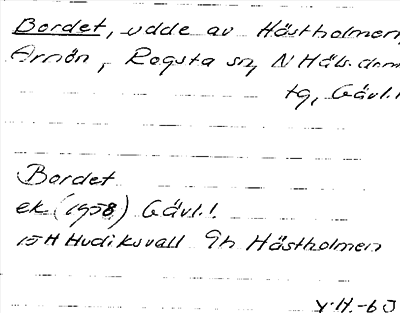 Bordet, udde av Hästholmen,
Arnön, Rogsta sn, N Häls. dom
tg, Gävl. l
Bordet
ek. (1958) Gävl. l.
15H Hudiksvall 9h Hästholmen